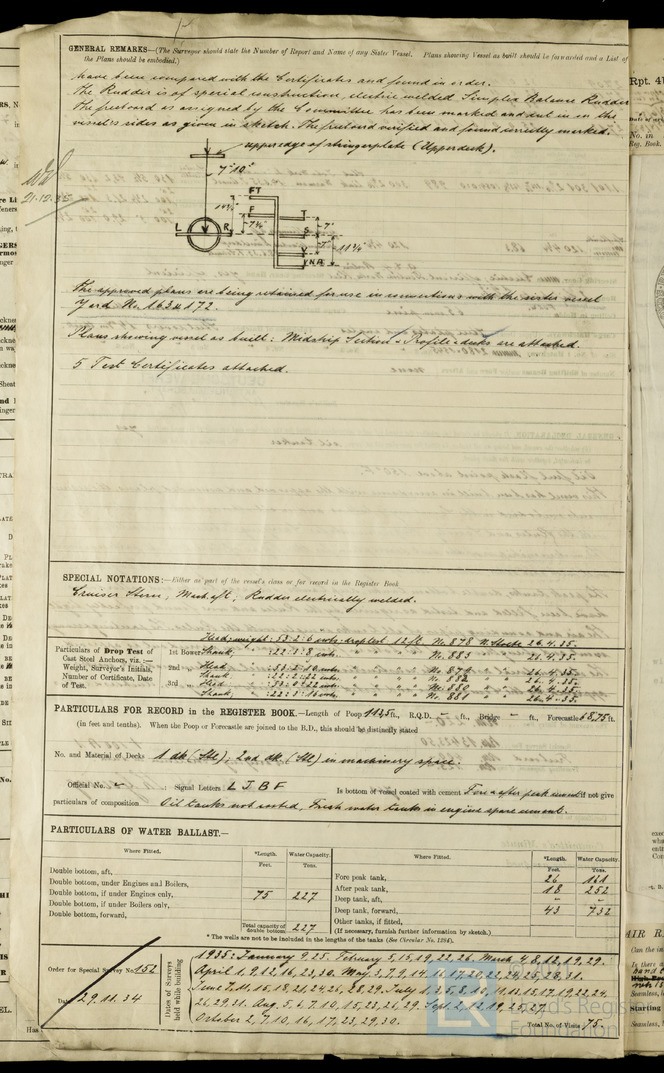 GENERAL REMARKS—(The Surveyor should state the Number of Report and Name of any Sister Vessel. Plans showing Vessel as built should be forwarded and a List of
the Plans should be embodied.)
have been compared with the Certificates and found in order.
The Rudder is of special construction, electric welded Simplex Balance Rudder
The freeboard as assigned by the Committee has been marked and cut in on the
vessel's sides as given in sketch. The freeboard verified and found correctly marked.
upperedge of stringerplate (Upperdeck).
21.12.35
7' 10"
FT
F
7¼"
L R
T
S
7"
11¼"
The approved plans are being retained for use in connections with the sister vessel
Yard No. 163 & 172.
Plans showing vessel as built: Midship Section & Profile & decks are attached.
5 Test Certificates attached.
SPECIAL NOTATIONS:—Either as part of the vessel's class or for record in the Register Book
Cruiser Stern, Mach. aft, Rudder electrically welded.
Particulars of Drop Test of
Cast Steel Anchors, viz.:—
Weight, Surveyor's Initials,
Number of Certificate, Date
of Test.
Head: weight: 53:2:6 cwts. droptest 12ft. No. 878 26.4.35.
1st Bower Shank, 22:1:8 cwts. No. 883 26.4.35.
2nd Head No. 879 26.4.35.
Shank 22:2:22 cwts. 882 26.4.35.
3rd No. 880 26.4.35.
Shank, 22:1:16 cwts. No. 881 26.4.35.
PARTICULARS FOR RECORD in the REGISTER BOOK.—Length of Poop 112,5 ft., R.Q.D. ft., Bridge — ft., Forecastle 58,75 ft.
(in feet and tenths). When the Poop or Forecastle are joined to the B.D., this should be distinctly stated
No. and Material of Decks 1 dk (Stl), 2nd dk (Stl) in machinery space.
Official No. Signal Letters: L J B F Is bottom of vessel coated with cement Fore & after peak cement if not give
particulars of composition Oil tanks not coated, Fresh water tanks in engine space cement.
PARTICULARS OF WATER BALLAST.—
Where Fitted. *Length. Water Capacity. Where Fitted. *Length. Water Capacity.
Feet. Tons. Feet. Tons.
Double bottom, aft, Fore peak tank, 26 161
Double bottom, under Engines and Boilers, After peak tank, 18 252
Double bottom, if under Engines only, 75 227 Deep tank, aft, - -
Double bottom, if under Boilers only, Deep tank, forward, 43 732
Double bottom, forward, Other tanks, if fitted,
Total capacity of double bottom 227 (If necessary, furnish further information by sketch.)
* The wells are not to be included in the lengths of the tanks (See Circular No. 1284).
Order for Special Survey No. 152
Date 29.11.34
Dates of Surveys held while building
1935: January 9,25. February 5,15,19,22,26. March 4,8,12,19,29.
April 1,9,12,16,23,30. May 3,7,9,14,16,17,20,21,24,25,28,31.
June 7,11,15,18,21,24,26,28,29. July 1,3,5,8,10,12,15,17,19,22,24,
26,29,31. Aug. 5,6,7,10,15,23,26,29. Sept. 2,12,19,23,27.
October 2,7,10,16,17,23,29,30.
Total No. of Visits 75.
LR
Lloyd's Register
Foundation